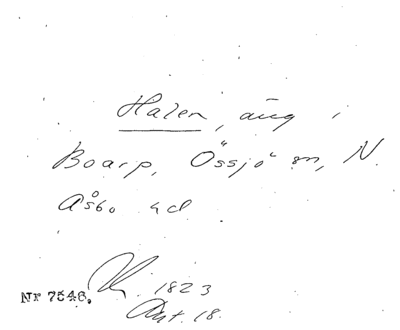 Halen, äng i
Boarp, Össjö sn, N.
Åsbo hd
Nr 7546. 1823
Ant. 18.